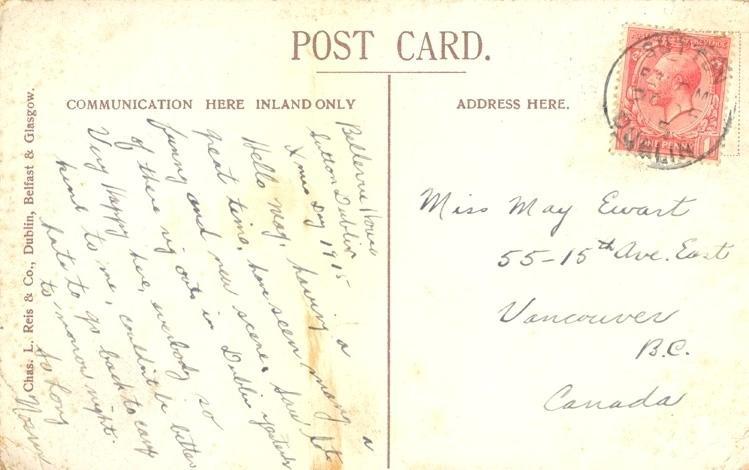 POST CARD.
COMMUNICATION HERE INLAND ONLY
ADDRESS HERE.
Chas. L. Reis & Co., Dublin, Belfast & Glasgow.
Bellevue House
Sutton Dublin
Xmas Day 1915
Hello May, having a
great time, have seen many a
funny and new scene. Saw
of there in Dublin yesterday
Very happy here, everybody so
kind to me, couldn't be better
hate to go back to camp
to morrow night.
So Long
Miss May Ewart
55-15th Ave. East
Vancouver
B.C.
Canada
SUTTON
DUBLIN
ONE PENNY